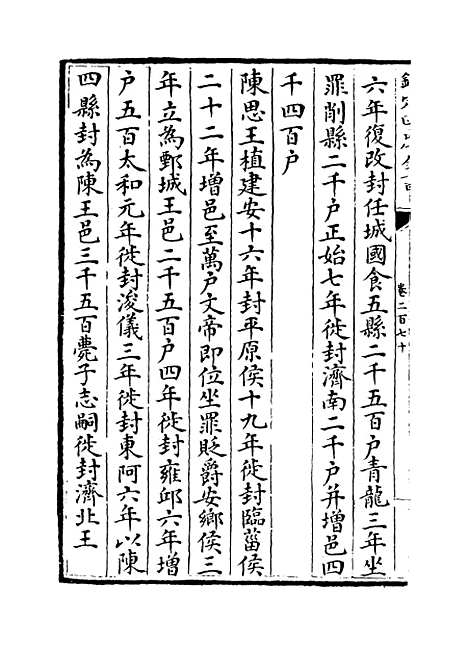 卷二百七十
六年復改封任城國食五縣二千五百户青龍三年坐
罪削縣二千户正始七年徙封濟南二千户并增邑四
千四百户
陳思王植建安十六年封平原侯十九年徙封臨菑侯
二十二年增邑至萬户文帝即位坐罪貶爵安鄉侯三
年立為鄄城王邑二千五百户四年徙封雍邱六年增
户五百太和元年徙封浚儀三年徙封東阿六年以陳
四縣封為陳王邑三千五百薨子志嗣徙封濟北王